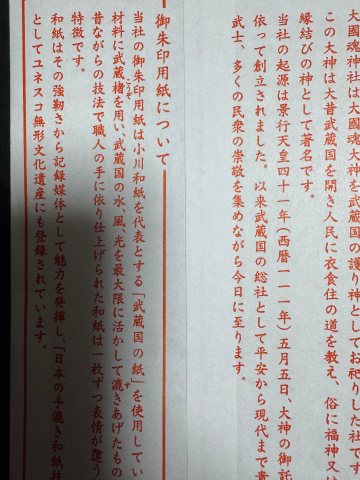 大國魂神社は大國魂大神を武蔵国の護り神としてお祀りした社です
この大神は大昔武蔵国を開き人民に衣食住の道を教え、俗に福神又は
縁結びの神として著名です。
当社の起源は景行天皇四十一年(西暦一一一年)五月五日、大神の御託
依って創立されました。以来武蔵国の総社として平安から現代まで貴
武士、多くの民衆の崇敬を集めながら今日に至ります。
御朱印用紙について
当社の御朱印用紙は小川和紙を代表とする「武蔵国の紙」を使用してい
材料に武蔵楮を用い、武蔵国の水、風、光を最大限に活かして漉きあげたもの
こうぞ
す
昔ながらの技法で職人の手に依り仕上げられた和紙は一枚ずつ表情が違う
特徴です。
和紙はその強靭さから記録媒体として魅力を発揮し、「日本の手漉き和紙技
としてユネスコ無形文化遺産にも登録されています。